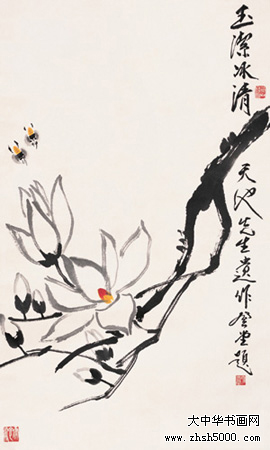 玉潔冰清
天池先生遺作登堂題
大中华书画网
www.zhsh5000.com